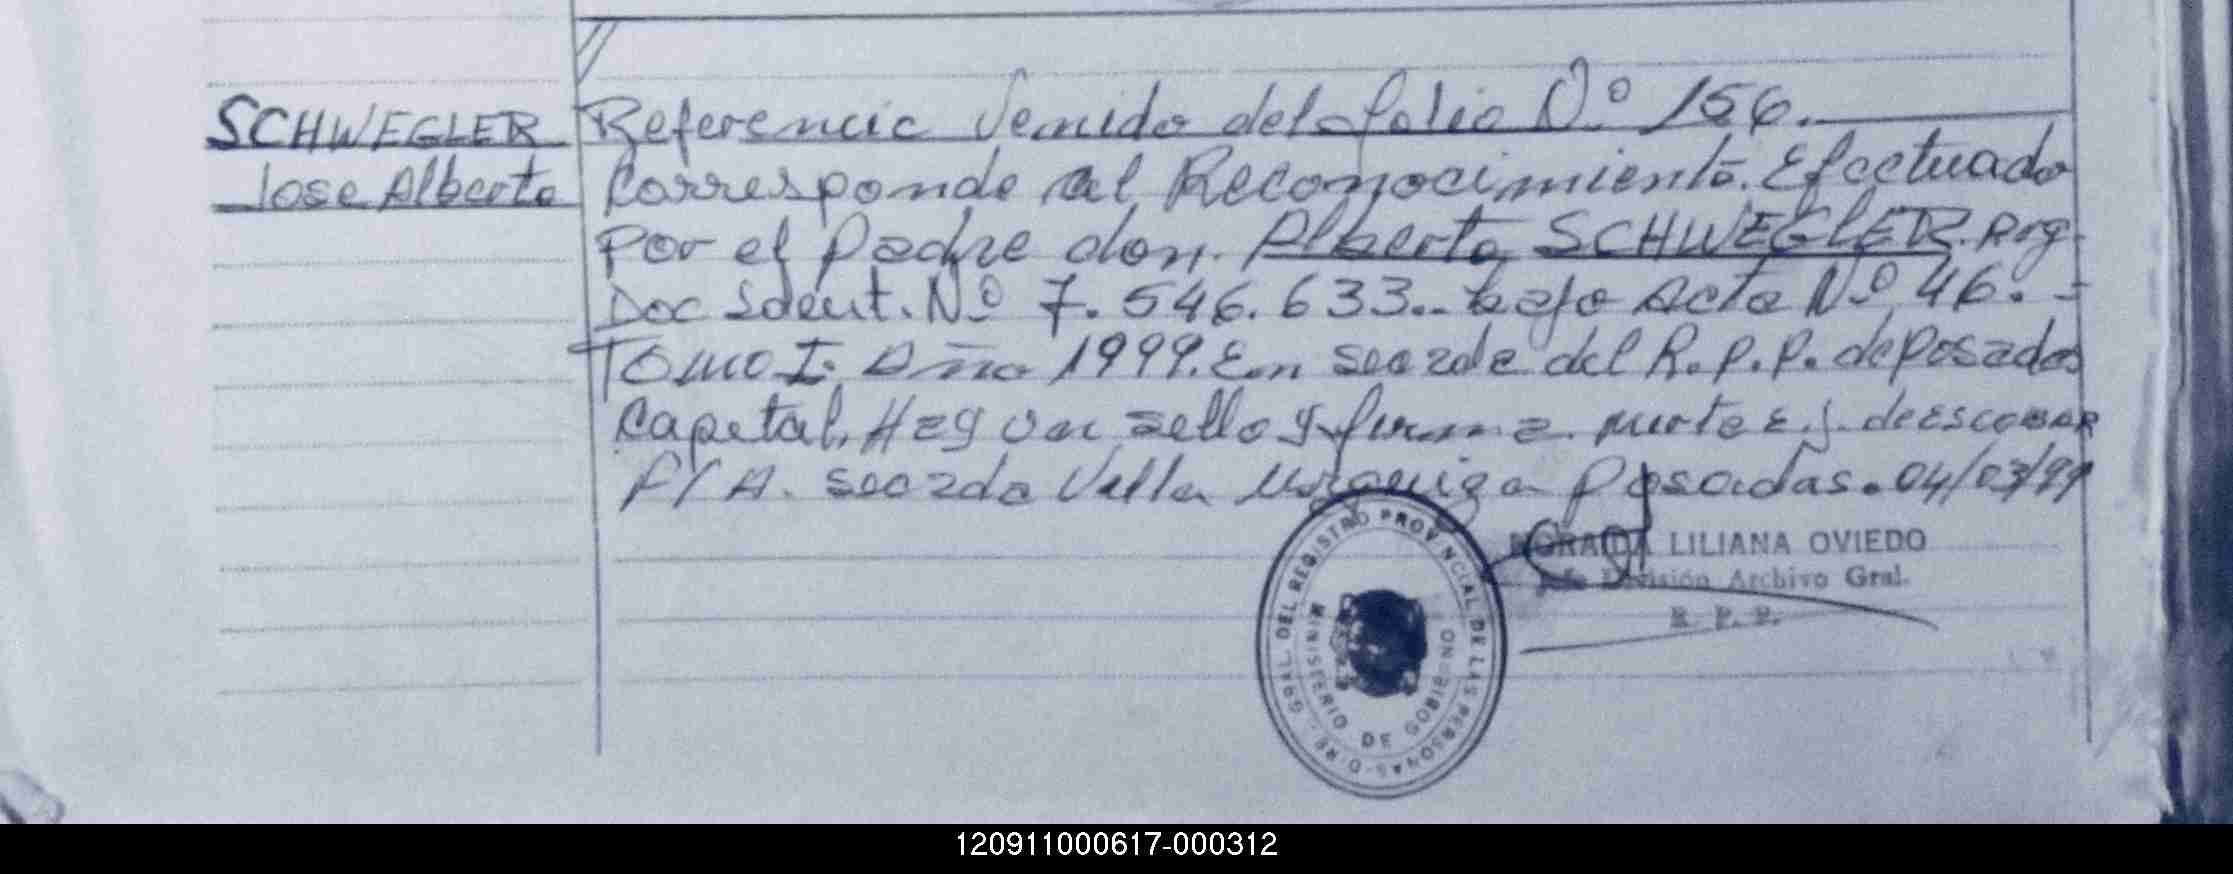 SCHWEGLER
Jose Alberto
Referencia Venida del folio Nº 156.
Corresponde al Reconocimiento. Efectuado
Por el Padre don. Alberto SCHWEGLER. Arg
Doc Ident. Nº 7.546.633.. bajo Acta Nº 46. -
Tomo I. Año 1999. En secrde del R.P.P. de Posadas
Capital. Hay un sello y firma. Mirta E. J. de ESCOBAR
F/A. secrda Villa Urquiza Posadas. 04/03/99
LILIANA OVIEDO
Jefe División Archivo Gral.
R. P. P.
DIRE. GRAL. DEL REGISTRO PROVINCIAL DE LAS PERSONAS
MINISTERIO DE GOBIERNO
120911000617-000312